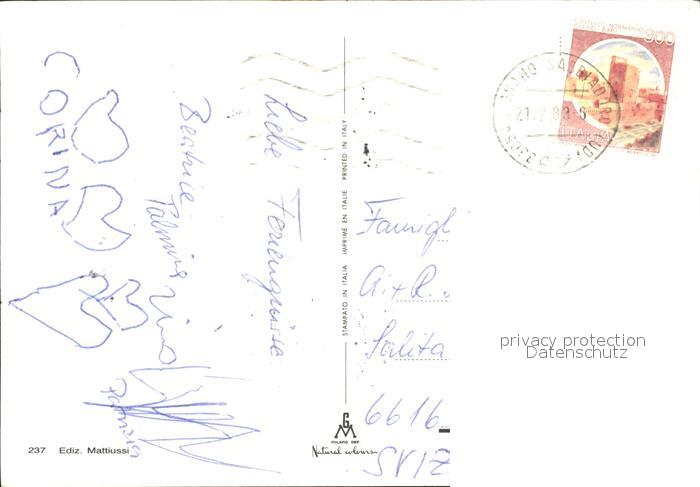 CORINA
Beatrice
Palmira
Liebe Feriengrüsse
Patrizia
237 Ediz. Mattiussi
STAMPATO IN ITALIA IMPRIMÉ EN ITALIE PRINTED IN ITALY
MILANO DEP.
Natural colours
Famigl
A.+R.
Salita
6616
SVIZ
ITALIA
300
21.7.83-6
privacy protection
Datenschutz